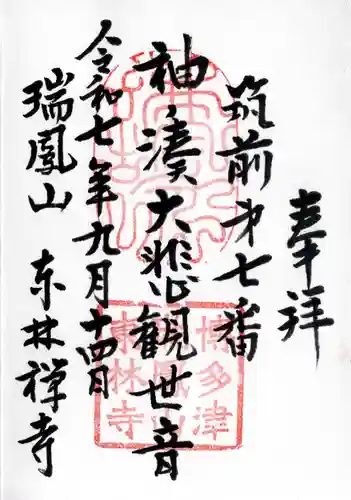 奉拝
筑前第七番
袖ノ湊大悲観世音
令和七年九月十四日
瑞鳳山 东林禅寺
博多津
瑞鳳山
東林寺